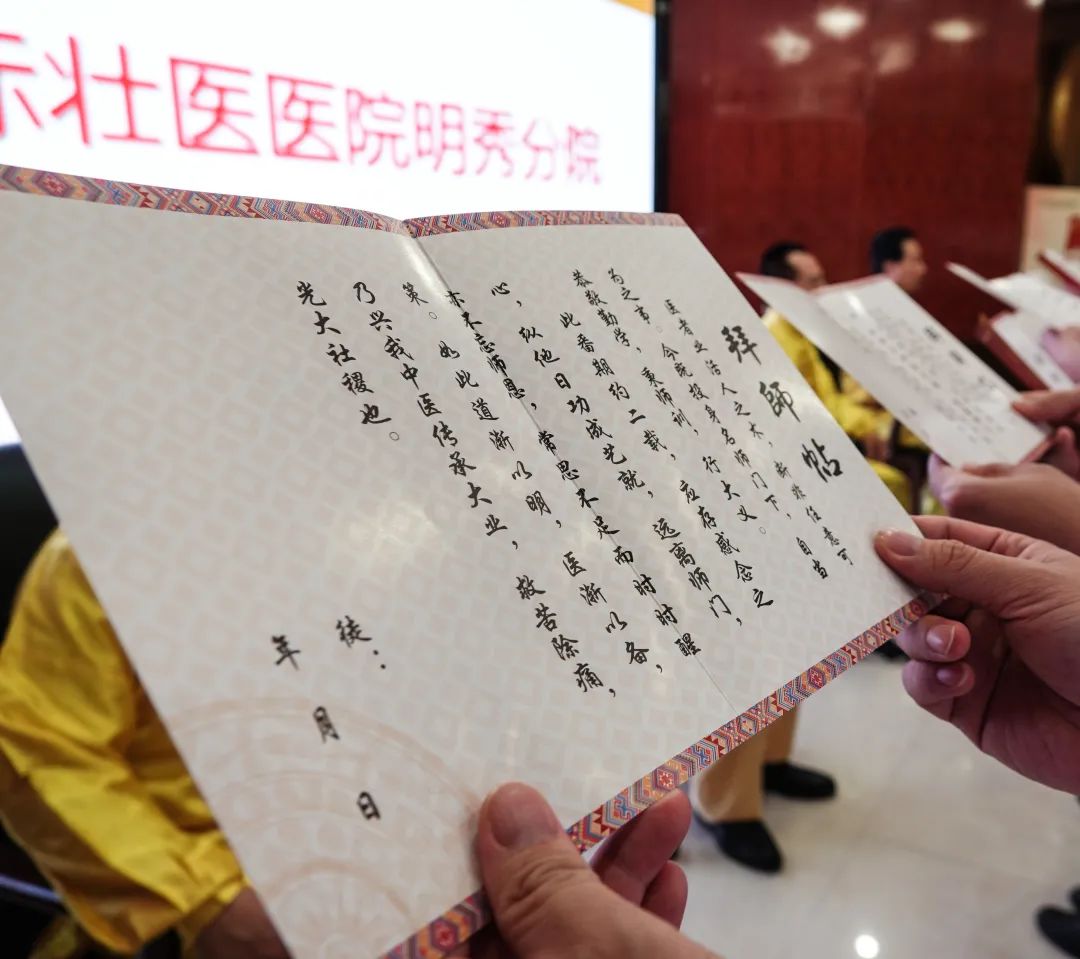 壮医医院明秀分院
拜師帖
医者业活人之术,断非任意可
为之事。今既投身名师门下,自当
恭敬勤学,秉师训,行大义。
此番期约二载,应存感念之
心,纵他日功成艺就,远离师门,
亦不忘师恩,常思不足而时时醒
策。如此道渐以明,医渐以备,
乃兴我中医传承大业,救苦除痛,
光大社稷也。
徒:
年月日